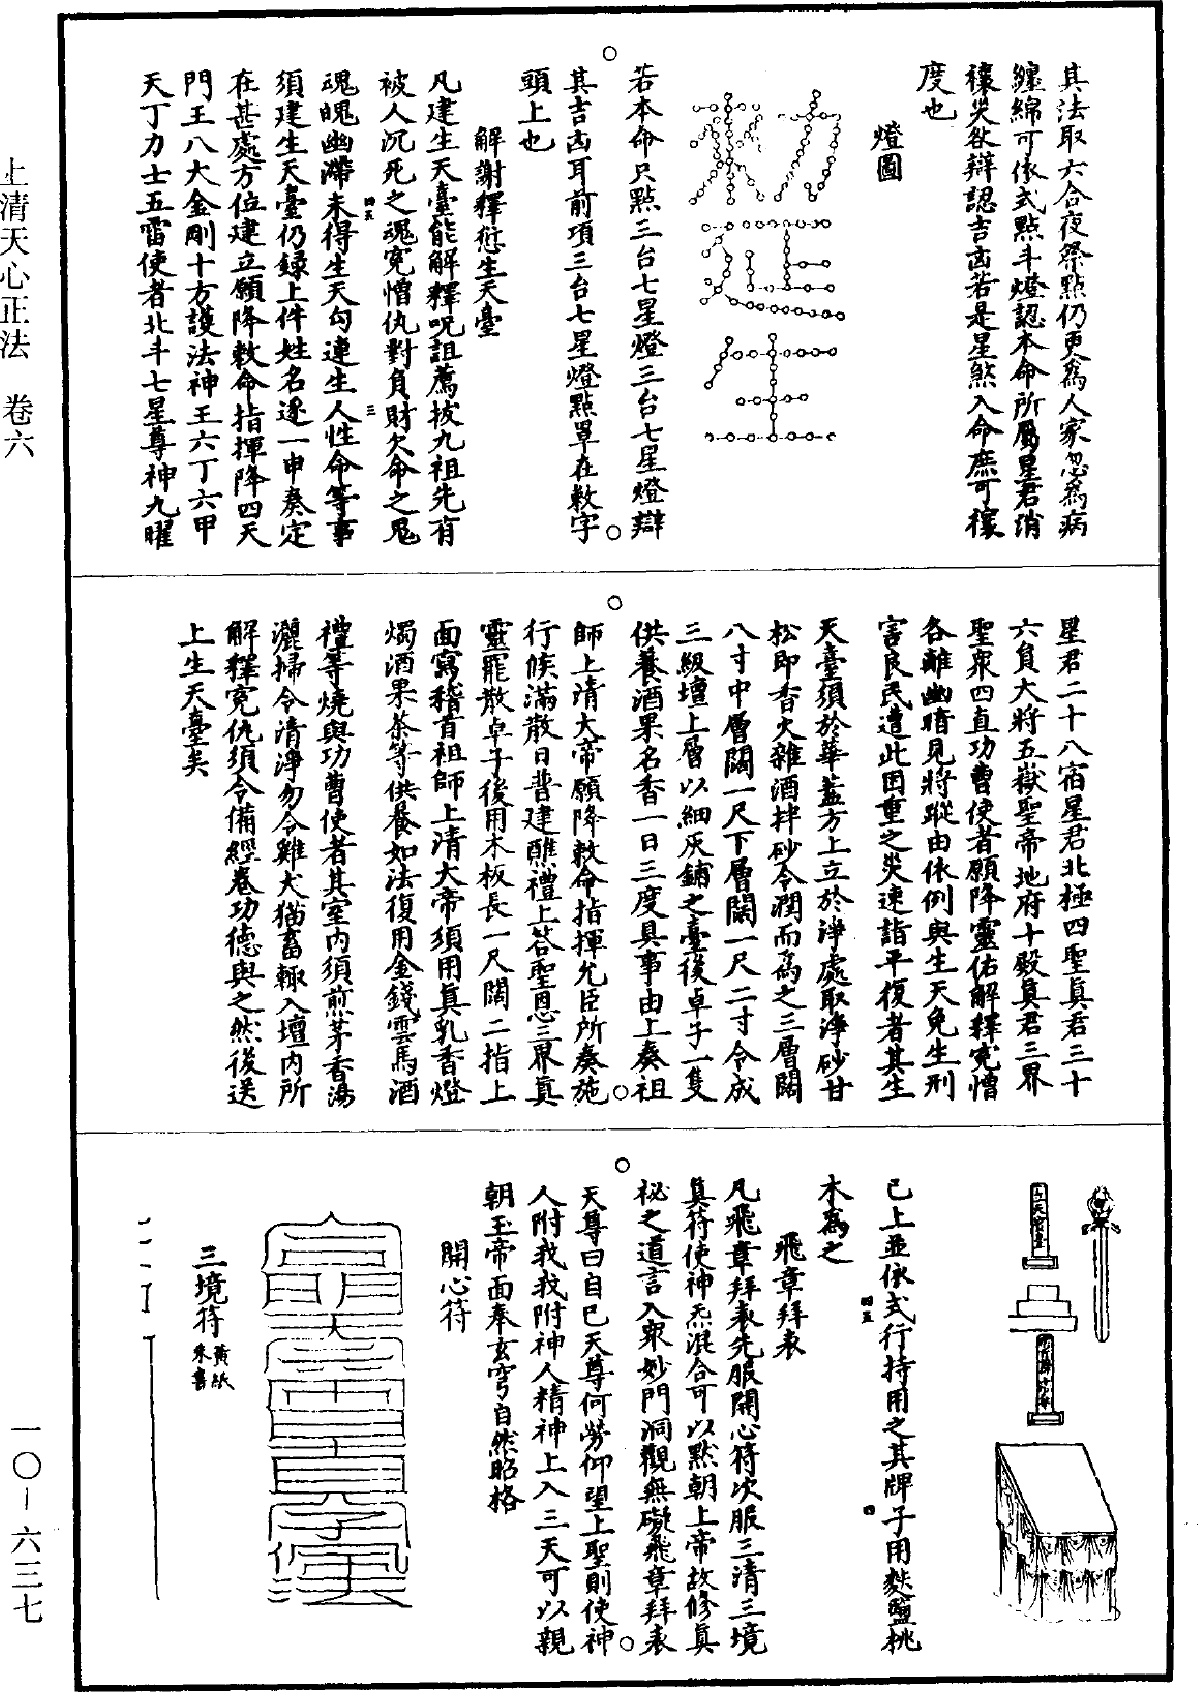 其法取六合夜祭點仍更為人家忽為病
纏綿可依式點斗燈認本命所屬星君消
穰災欲辯認吉凶若是星煞入命庶可穰
度也
燈圖
敕延生
若本命只點三台七星燈三台七星燈辯
其吉凶耳前項三台七星燈點罩在敕字
頭上也
解謝釋愆生天臺
凡建生天臺能解釋呪詛薦拔九祖先有
被人沉死之魂寃憎仇對負財欠命之鬼
魂魄幽滯未得生天勾連生人性命等事
須建生天臺仍錄上件姓名逐一申奏定
在甚處方位建立願降敕命指揮降四天
門王八大金剛十方護法神王六丁六甲
天丁力士五雷使者北斗七星尊神九曜
星君二十八宿星君北極四聖真君三十
六員大將五嶽聖帝地府十殿真君三界
聖眾四直功曹使者願降靈佑解釋寃憎
各離幽暗見將蹤由依例與生天免生刑
害良民遭此困重之災速詣平復者其生
天臺須於華蓋方上立於淨處取淨砂甘
松即香火雜酒拌砂令潤而為之三層闊
八寸中層闊一尺下層闊一尺二寸令成
三級壇上層以細灰鋪之臺後卓子一隻
供養酒果名香一日三度具事由上奏祖
師上清大帝願降敕命指揮允臣所奏施
行候滿散日普建醮禮上答聖恩三界真
靈罷散卓子後用木板長一尺闊二指上
面寫稽首祖師上清大帝須用真乳香燈
燭酒果茶等供養如法復用金錢雲馬酒
禮等燒與功曹使者其室內須煎茅香湯
灑掃令清淨勿令雞犬猫畜輙入壇內所
解釋寃仇須令備經卷功德與之然後送
上生天臺矣
已上並依式行持用之其牌子用𣘨盤桃
木為之
飛章拜表
凡飛章拜表先服開心符次服三清三境
真符使神炁混合可以默朝上帝故修真
祕之道言入眾妙門洞觀無礙飛章拜表
天尊曰自己天尊何勞仰望上聖則使神
人附我我附神人精神上入三天可以親
朝玉帝面奉玄穹自然昭格
開心符
三境符 黃紙朱書
上清天心正法 卷六
一〇—六三七